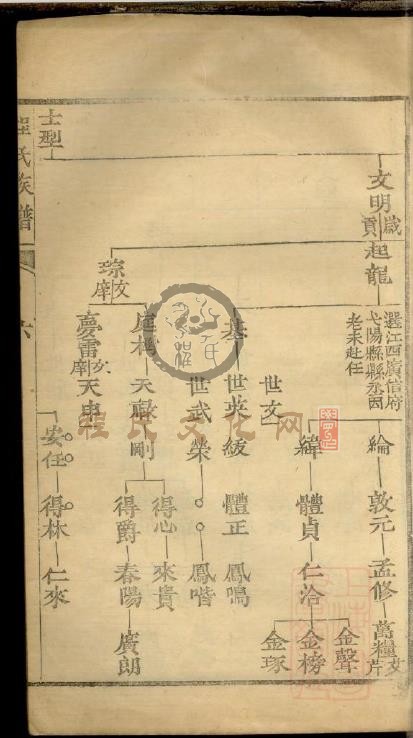 程氏族譜
六
文明
歲貢
起龍
選江西廣信府
弋陽縣縣丞因
老未赴任
綸
敦元
孟修
萬糧
文芹
世文
緯
體貞
仁洽
金聲
金榜
金琢
基
世英
緩
體正
鳳鳴
世武
榮
鳳喈
琮
文庠
天祿
剛
得心
來貴
得爵
春陽
廣朗
夢雷
文庠
天申
安任
得林
仁來
士型
程氏文化网